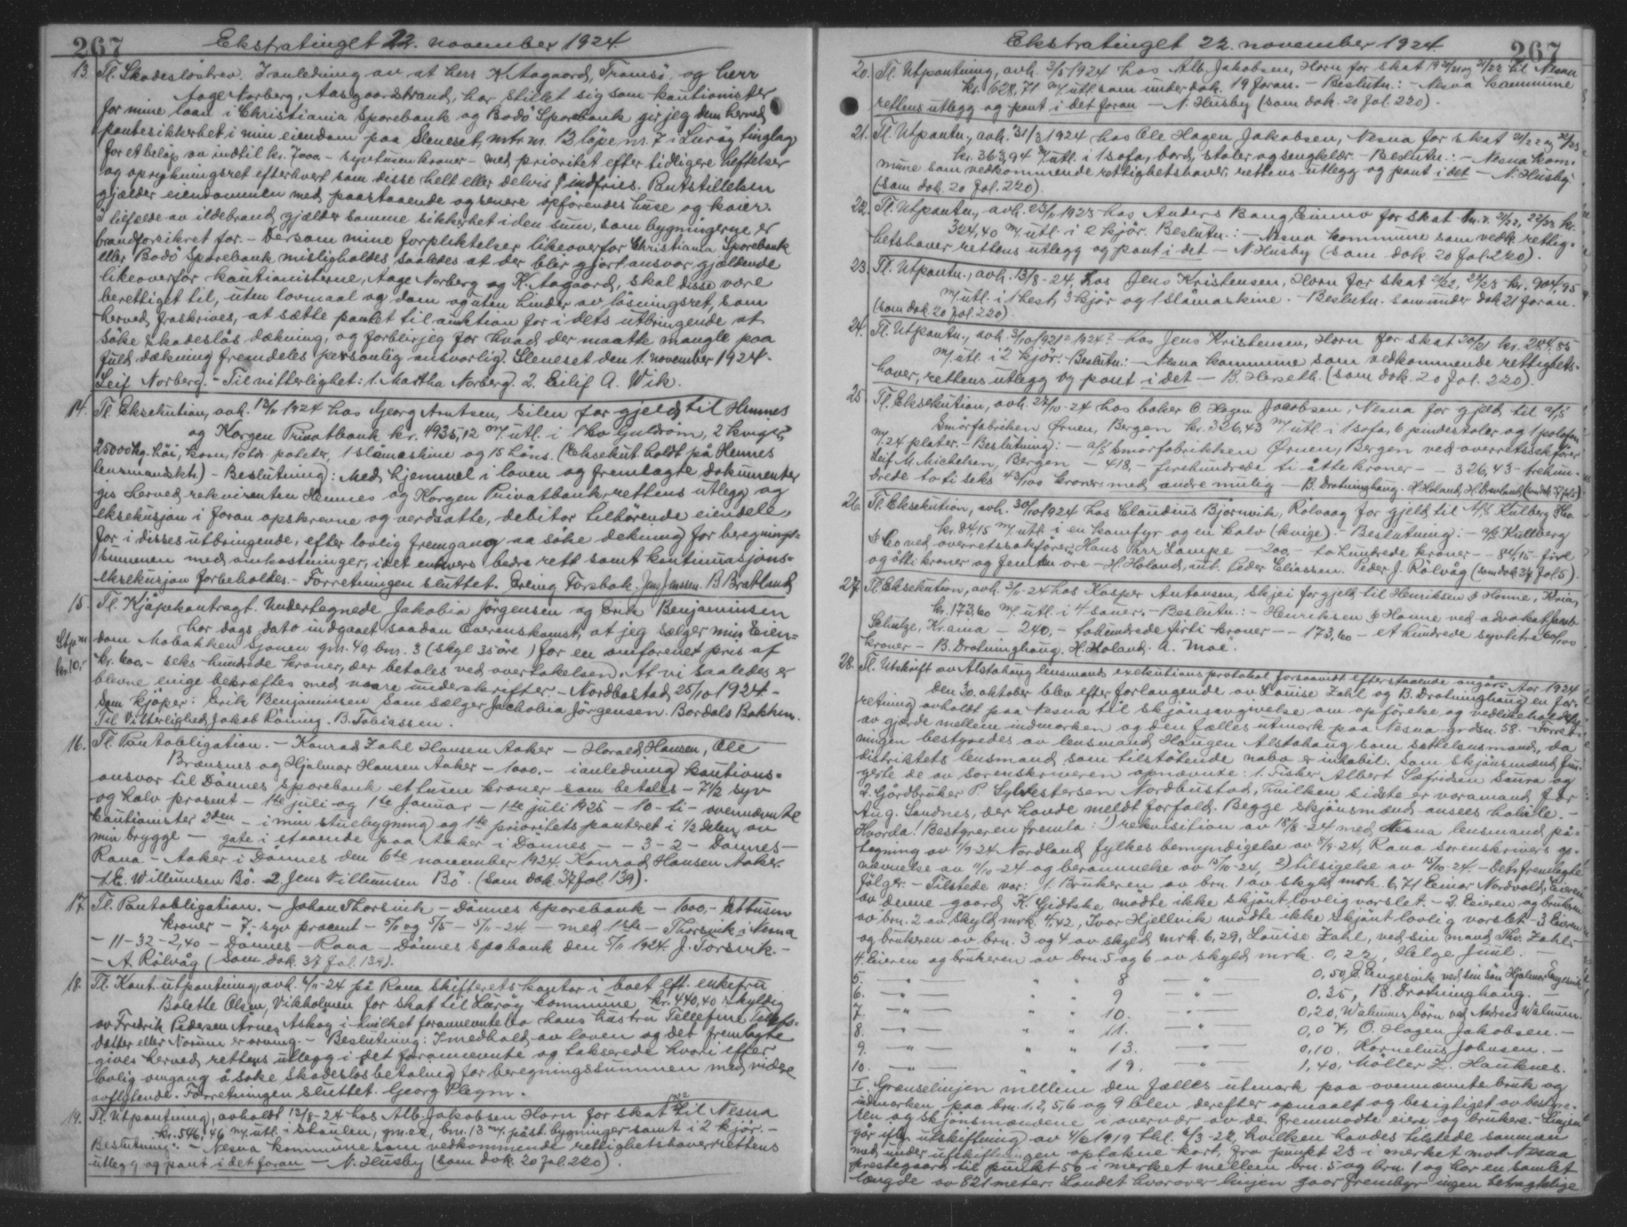 267
Ekstratinget 22. november 1924
13. Tl. Skadesløsbrev. I anledning av at herr K. Aagaard, Tromsö, og herr
Aage Norberg, Aasgaardstrand, har stillet sig som kautionister
for mine laan i Christiania Sparebank og Bodö Sparebank gir jeg dem herved
pantesikkerhet i min eiendom paa Sleneset, mtr. nr. Bløpe nr. 7 i Luröy tinglag
for et beløp av indtil kr. 7000 - syvtusen kroner - med prioritet efter tidligere heftelser
og oprykningsret efterhvert som disse helt eller delvis indfries. Pantstillelsen
gjælder eiendommen med paastaaende og senere opførendes huse og kaier.
I tilfelde av ildebrand gjælder samme sikkerhet i den sum, som bygningerne er
brandforsikret for. - Dersom mine forpliktelser likeoverfor Christiania Sparebank
eller Bodö Sparebank misligholdes saaledes at der blir gjort ansvar gjældende
likeoverfor kautionisterne, Aage Norberg og K. Aagaard, skal disse være
berettiget til, uten lovmaal og dom og uten hinder av løsningsret, som
herved fraskrives, at sætte pantet til auktion for i dets utbringende at
søke skadesløs dækning, og forblir jeg for hvad der maatte mangle paa
fuld dækning fremdeles personlig ansvarlig. Sleneset den 1. november 1924.
Leif Norberg. - Til vitterlighet: 1. Martha Norberg. 2. Eilif A. Wik.
14. Tl. Eksekution, avh. 12/11 1924 hos Georg Arntsen, Silen for gjeld til Hemnes
og Korgen Privatbank kr. 4935,12 m/ utl. i 1 ko Guldrom, 2 kviger,
25000 kg. höi, korn, 10 tdr. poteter, 1 slåmaskine og 15 löns. (Eksekut. holdt på Hemnes
lensmandsktr.) - Beslutning: Med hjemmel i loven og fremlagte dokumenter
gis herved rekvirenten Hemnes og Korgen Privatbank, rettens utlegg og
eksekusjon i foran opskrevne og verdsatte, debitor tilhørende eiendele,
for i disses utbringende, efter lovlig fremgang aa søke dekning for beregnings-
summen med omkostninger, i det enhvers bedre rett samt kontinuasjons-
eksekusjon forbeholdes. - Forretningen sluttet. Ering Forsbak. Jens Jenssen. B. Bratland
15. Tl. Kjøpekontragt. Undertegnede Jakobia Jörgensen og Erik Benjaminsen
har dags dato indgaaet saadan Overenskomst, at jeg sælger min Eien-
Stpm. kr. 10,-
dom Mobakken Sjonen gnr. 40, bnr. 3 (skyl 35 öre) for en omforenet pris af
kr. 600,- seks hundrede kroner, der betales ved overtakelsen. At vi saaledes er
blevne enige bekræftes med voare underskrifter. - Nordbastad 25/10 1924. -
Som kjøper: Erik Benjaminsen som sælger Jachobia Jörgensen. Bordals Bakken.
Til Vitterlighed, Jakob Rønning. B. Tobiassen.
16. Tl. Pantobligation. - Konrad Zahl Hansen Aaker - Horald Hansen, Ole
Brænsnes og Hjalmar Hansen Aaker - 1000,- i anledning kautions-
ansvar til Dönnes sparebank et tusen kroner som betales - 7 1/2 syv
og halv prosent - 1ste juli og 1ste Januar - 1ste juli 1925 - 10 - ti - ovennævnte
kautionister 2den - i min stuebygning og 1ste prioritets panteret i 1/2 delen av
min brygge - gate i staaende paa Aaker i Dönnes - - 3 - 2 - Dönnes -
Rana - Aaker i Dönnes den 6te november 1924. Konrad Hansen Aaker.
1. E. Willumsen Bö. 2. Jens Villumsen Bö. (Som dok. 37 fol. 139).
17. Tl. Pantobligation. - Johan Thorsvik - Dönnes sparebank - 1000,- Ettusen
kroner - 7 - syv procent - 5/11 og 5/5 - 5/11 - 24 - med 1ste - Thorsvik i Nesna
- 11 - 32 - 2,40 - Dönnes - Rana - Dönnes spabank den 5/11 1924. J. Torsvik. -
- A. Rölvåg (Som dok. 37 fol. 139).
18. Tl. Kont. utpantning, avh. 4/11 - 24 på Rana skifteretskontor i boet eft. enkefru
Boletle Olsen, Vikholmen for skat til Lurøy kommune kr. 440,40 skyldig
av Fredrik Pedersen Arnes, Askog i hvilket forannevnte bo hans hustru Tellefine Tellefs-
datter eller Norum er arving. - Beslutning: I medhold av loven og det fremlagte
gives herved rettens utlegg i det forannevnte og takserede hvori efter
lovlig omgang å søke skadesløs betaling for beregningssummen med videre
avflytende. Forretningen sluttet Georg Plegm.
19. Tl. Utpantning, avholdt 12/8 - 24 hos Alb. Jakobsen Horn for skat 1922 til Nesna
kr. 546,46 m/ utl. i Staulen, gnr. 22, bnr. 13 m/ påst. bygninger samt i 2 kjør. -
Beslutning: - Nesna kommune som vedkommende rettighetshaver rettens
utlegg og pant i det foran - N. Husby (som dok. 20 fol. 220).
Ekstratinget 22. november 1924.
267
20. Tl. Utpantning, avh. 3/5 1924 hos Alb. Jakobsen, Horn for skat til Nesna
kr. 628,71 m/ utl. som under dok. 19 foran. - Beslutn.: - Nesna kommune
rettens utlegg og pant i det foran - N. Husby (som dok. 20 fol. 220).
21. Tl. Utpantn., avh. 31/3 1924 hos Ole Hagen Jakobsen, Nesna for skat 21/22 og 22/23
kr. 363,94 m/ utl. i 1 sofa, bord, stoler og sengklær. - Beslutn.: - Nesna kom-
mune som vedkommende rettighetshaver, rettens utlegg og pant i det - N. Husby
(som dok. 20 fol. 220).
22. Tl. Utpantn., avh. 1923 hos Anders Bang Einmo for skat 21/22, 22/23 kr.
324,40 m/ utl. i 2 kjör. Beslutn.: - Nesna kommune som vedk. rettig-
hetshaver rettens utlegg og pant i det - N. Husby (som dok. 20 fol. 220).
23. Tl. Utpantn., avh. 13/8 - 24 hos Jens Kristensen, Horn for skat 21/22, 22/23 kr.
m/ utl. i 1 hest, 3 kjör og 1 slåmaskine. - Beslutn. som under dok. 21 foran.
(som dok. 20 fol. 220)
24. Tl. Utpantn., avh. 3/10 1921 (?1924?) hos Jens Kristensen, Horn for skat 20/21 kr. 284,55
m/ utl. i 2 kjör. - Beslutn.: - Nesna kommune som vedkommende rettighets-
haver, rettens utlegg og pant i det - B. Herseth. (som dok. 20 fol. 220).
25. Tl. Eksekution, avh. 27/10 - 24 hos baker O. Hagen Jacobsen, Nesna for gjeld til a/s
Smørfabrikken Ørnen, Bergen kr. 326,43 m/ utl. i 1 sofa, 6 pindestoler og 1 polofon
m/ 24 plater. - Beslutning: - a/s Smørfabrikken Ørnen, Bergen ved overretssakfører
Leif M. Michelsen, Bergen - 418,- firehundrede ti åtte kroner - 326,43 - trehun-
drede toti seks 43/100 kroner med andre mulig - B. Drotninghaug. H. Holand. (som dok. 37 fol. 5).
26. Tl. Eksekution, avh. 30/10 1924 hos Claudius Bjørnvik, Rölvaag for gjeld til A/S Kulberg &
Co kr. 84,15 m/ utl. i en komfyr og en kalv (kvige). - Beslutning: - a/s Kullberg
& Co ved overretssakfører Hans Parr Lampe - 200,- tohundrede kroner - 84,15 - fire
og åtti kroner og femten öre - H. Holand, utl. Peder Eliassen. Peder J. Rölvåg (som dok. 37 fol. 5).
27. Tl. Eksekution, avh. 3/11 - 24 hos Kasper Antonsen, Skjei for gjeld til Henriksen & Honne, Kr.ia,
kr. 173,60 m/ utl. i 4 sauer. - Beslutn.: - Henriksen & Honne ved advokatfuldm.
Schulze, Kr.ania - 240,- tohundrede firti kroner - - 173,60 - et hundrede syttitre 60/100
kroner - B. Drotninghaug. H. Holand. A. Moe.
28. Tl. Utskrift av Alstahaug lensmands exekutionsprotokol forsaavidt efterstaaende angaar. Aar 1924
den 30. oktober blev efter forlangende av Louise Zahl og B. Drotninghaug en for-
retning avholdt paa Nesna til skjönsavgivelse om opførelse og vedlikehold
av gjærde mellem indmarken og den fælles utmark paa Nesna grdsn. 58. - Forret-
ningen bestyredes av lensmand Haugen Alstahaug som settelensmand, da
distriktets lensmand som tilstøtende nabo er inhabil. Som skjønsmænd fun-
gerte de av sorenskriveren opnævnte: 1. Fisker Albert Sæfridsen Saura og
2. Gårdbruker P. Sylvestersen Nordbustad, hvilken sidste er varamand for
Aug. Sandnes, der havde meldt forfald. Begge skjönsmænd ansees habile. -
Hvorda! Bestyreren fremla: 1) rekvisition av 18/8 - 24 med Nesna lensmand på-
tegning av 1/9 - 24. Nordland fylkes bemyndigelse av 4/9 - 24, Rana sorenskrivers op-
nævnelse av 11/10 - 24 og berammelse av 15/10 - 24, 2) tilsigelse av 15/10 - 24. - Dets fremlagte
følger. - Tilstede var: 1. Brukeren av bnr. 1 av skyld mrk. 6,71 Einar Nordvold, Eieren
av denne gaard K. Gidtske mødte ikke skjønt lovlig varslet. - 2. Eieren og brukeren
av bnr. 2 av skyld mrk. 4,42, Ivar Hjellvik mødte ikke skjønt lovlig varslet. - 3. Eieren
og brukeren av bnr. 3 og 4 av skyld mrk. 6,29, Louise Zahl, ved sin mand Thv. Zahl. -
4. Eieren og brukeren av bnr. 5 og 6 av skyld mrk. 0,22, Helge Juul. -
5. — " — " " 8 — " — 0,50, J. Langesvik ved sin sön Hjalmar Langesvik
6. — " — " " 9 — " — 0,35, B. Drotninghaug. -
7. — " — " " 10. — " — 0,20, Walnums børn ved Andreas Walnum.
8. — " — " " 11. — " — 0,07, O. Hagen Jakobsen. -
9. — " — " " 13. — " — 0,10. Kornelius Johnsen. -
10. — " — " " 19. — " — 1,40. Möller Z. Hauknes.
I. Grænselinjen mellem den fælles utmark paa ovennævnte bruk og
indmarken paa bnr. 1, 2, 5, 6 og 9 blev derefter opmaalt og besigtiget av bestyre-
ren og skjønsmændene i overvær av de fremmødte eiere og brukere. - Linjen
går iflg. utskiftning av 4/6 1919 tbl. 4/3 - 22, hvilken havdes tilstede sammen
med under utskiftningen optakne kart, fra punkt 23 i merket mot Nesna
prestegaard til punkt 56 i merket mellem bnr. 5 og bnr. 1 og har en samlet
længde av 821 meter. Landet hvorover linjen gaar frembyr ingen betragtelige